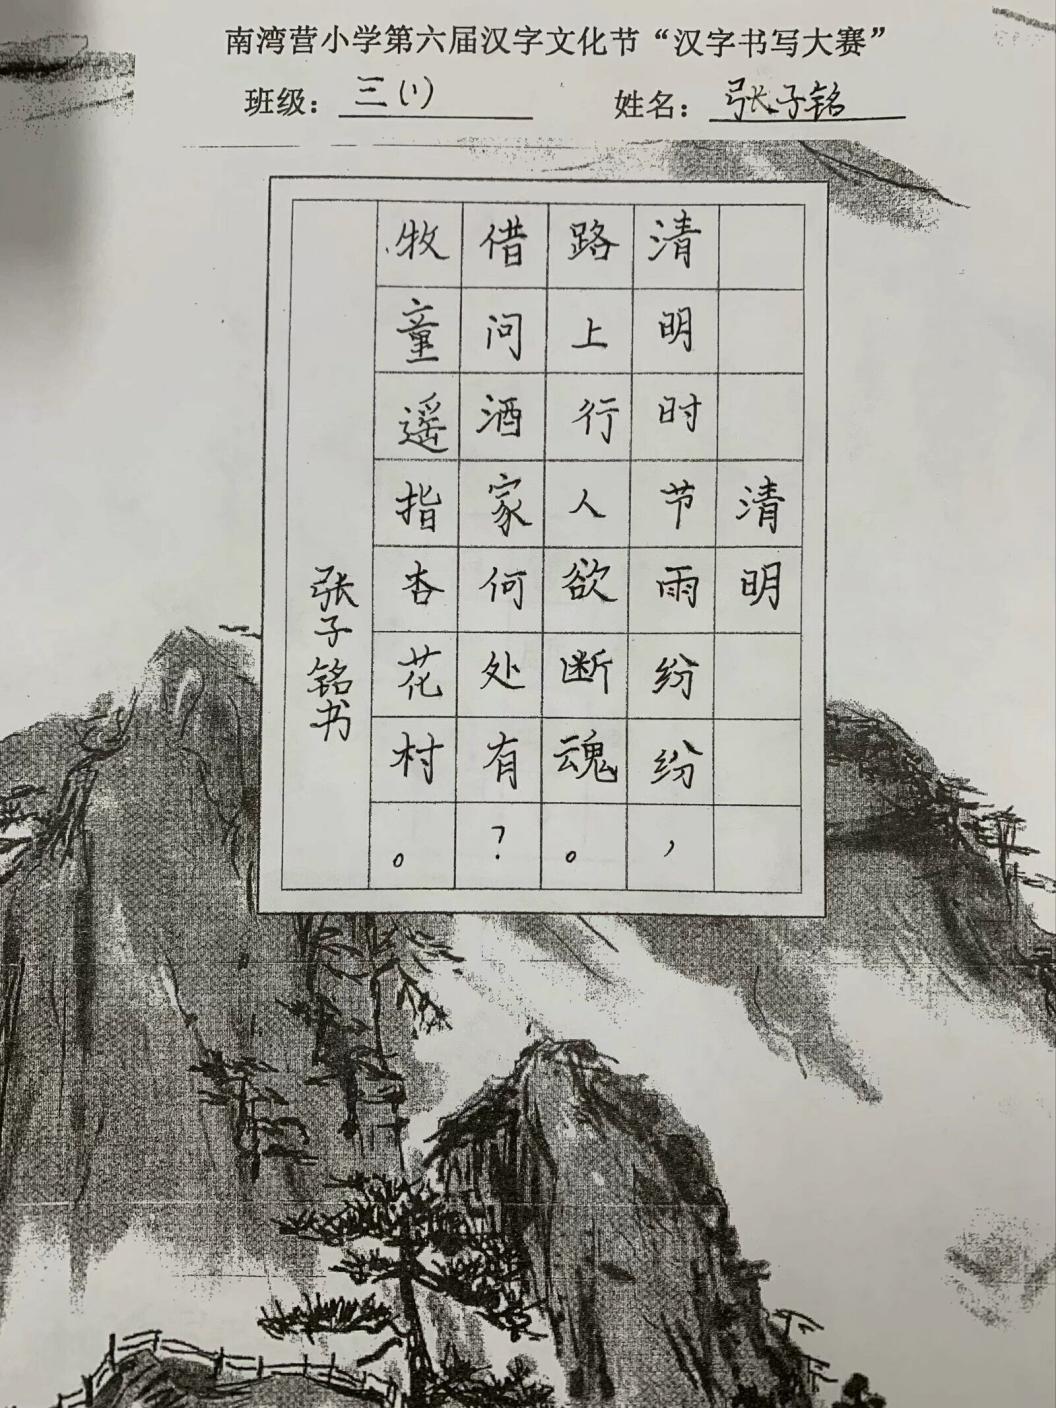 南湾营小学第六届汉字文化节“汉字书写大赛”
班级：三(1) 姓名：张子铭
清明
清明时节雨纷纷，
路上行人欲断魂。
借问酒家何处有？
牧童遥指杏花村。
张子铭书